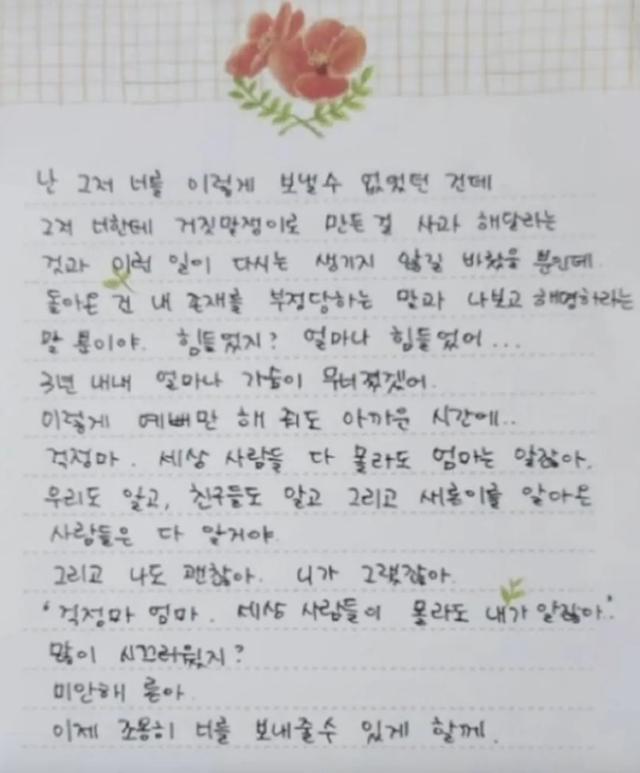 난 그저 너를 이렇게 보낼수 없었던 건데
그저 너한테 거짓말쟁이로 만든 걸 사과 해달라는
것과 이런 일이 다시는 생기지 않길 바랬을 뿐인데.
돌아온 건 내 존재를 부정당하는 말과 나보고 해명하라는
말 뿐이야. 힘들었지? 얼마나 힘들었어...
3년 내내 얼마나 가슴이 무너졌겠어.
이렇게 예뻐만 해 줘도 아까운 시간에..
걱정마. 세상 사람들 다 몰라도 엄마는 알잖아.
우리도 알고, 친구들도 알고 그리고 새론이를 알아온
사람들은 다 알거야.
그리고 나도 괜찮아. 니가 그랬잖아.
'걱정마 엄마. 세상 사람들이 몰라도 내가 알잖아.'
많이 시끄러웠지?
미안해 론아.
이제 조용히 너를 보내줄수 있게 할께.